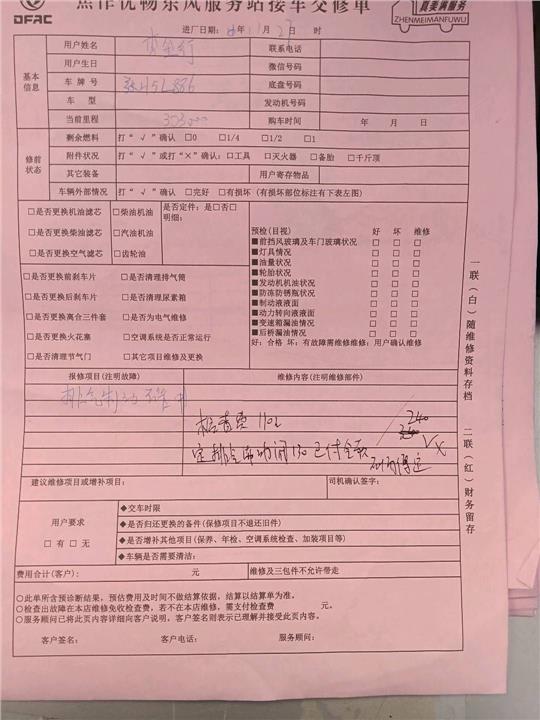 焦作优畅东风服务站接车交修单
DFAC
真美满服务
ZHENMEIMANFUWU
进厂日期： 年 11 月 27 日 时
基本信息
用户姓名
联系电话
用户生日
微信号码
车 牌 号
底盘号码
车 型
发动机号码
当前里程
303000
购车时间
年 月 日
修前状态
剩余燃料
打“√”确认 □0 □1/4 □1/2 □1
附件状况
打“√”或打“×”确认：□工具 □灭火器 □备胎 □千斤顶
其它装备
用户寄存物品
车辆外部情况
打“√”确认 □完好 □有损坏（有损坏部位标注有下表左图）
□是否更换机油滤芯 □柴油机油
□是否更换柴油滤芯 □汽油机油
□是否更换空气滤芯 □齿轮油
是否定件：是□否□
明细：
□是否更换前刹车片 □是否清理排气筒
□是否更换后刹车片 □是否清理尿素箱
□是否更换离合三件套 □是否为电气维修
□是否更换火花塞 □空调系统是否正常运行
□是否清理节气门 □其它项目维修及更换
预检（目视） 好 坏 维修
■前挡风玻璃及车门玻璃状况 □ □ □
■灯具情况 □ □ □
■油量状况 □ □ □
■轮胎状况 □ □ □
■发动机机油状况 □ □ □
■防冻防锈瓶状况 □ □ □
■制动液液面 □ □ □
■动力转向液液面 □ □ □
■变速箱漏油情况 □ □ □
■后桥漏油情况 □ □ □
好：合格 坏：有故障需维修维修：用户确认维修
报修项目（注明故障）
维修内容（注明维修部件）
排气制动不管用
检查费 110
240
排气制动阀 130 已付全款
建议维修项目或增补项目：
司机确认签字：
用户要求
□有 □无
◆交车时限
◆是否归还更换的备件（保修项目不退还旧件）
◆是否增补其他项目（保养、年检、空调系统检查、加装项目等）
◆车辆是否需要清洁：
费用合计（客户）： 元
维修及三包件不允许带走
○此单所含预诊断结果，预估费用及时间不做结算依据，结算以结算单为准。
○检查出故障在本店维修免收检查费，若不在本店维修，需支付检查费 元。
○服务顾问已将此页内容详细向客户说明，客户签名则表示已理解并接受此页内容。
客户签名： 客户电话： 服务顾问：
一联（白）随维修资料存档 二联（红）财务留存